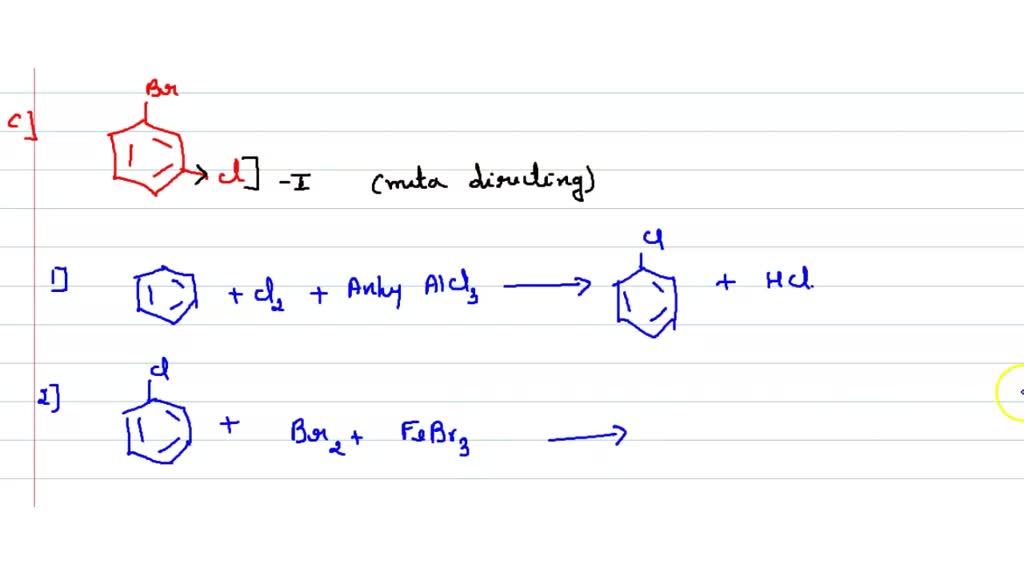 Br
C]
Cl] -I (meta directing)
Cl
1] + Cl2 + Anhy AlCl3 → + HCl
Cl
2] + Br2 + FeBr3 →